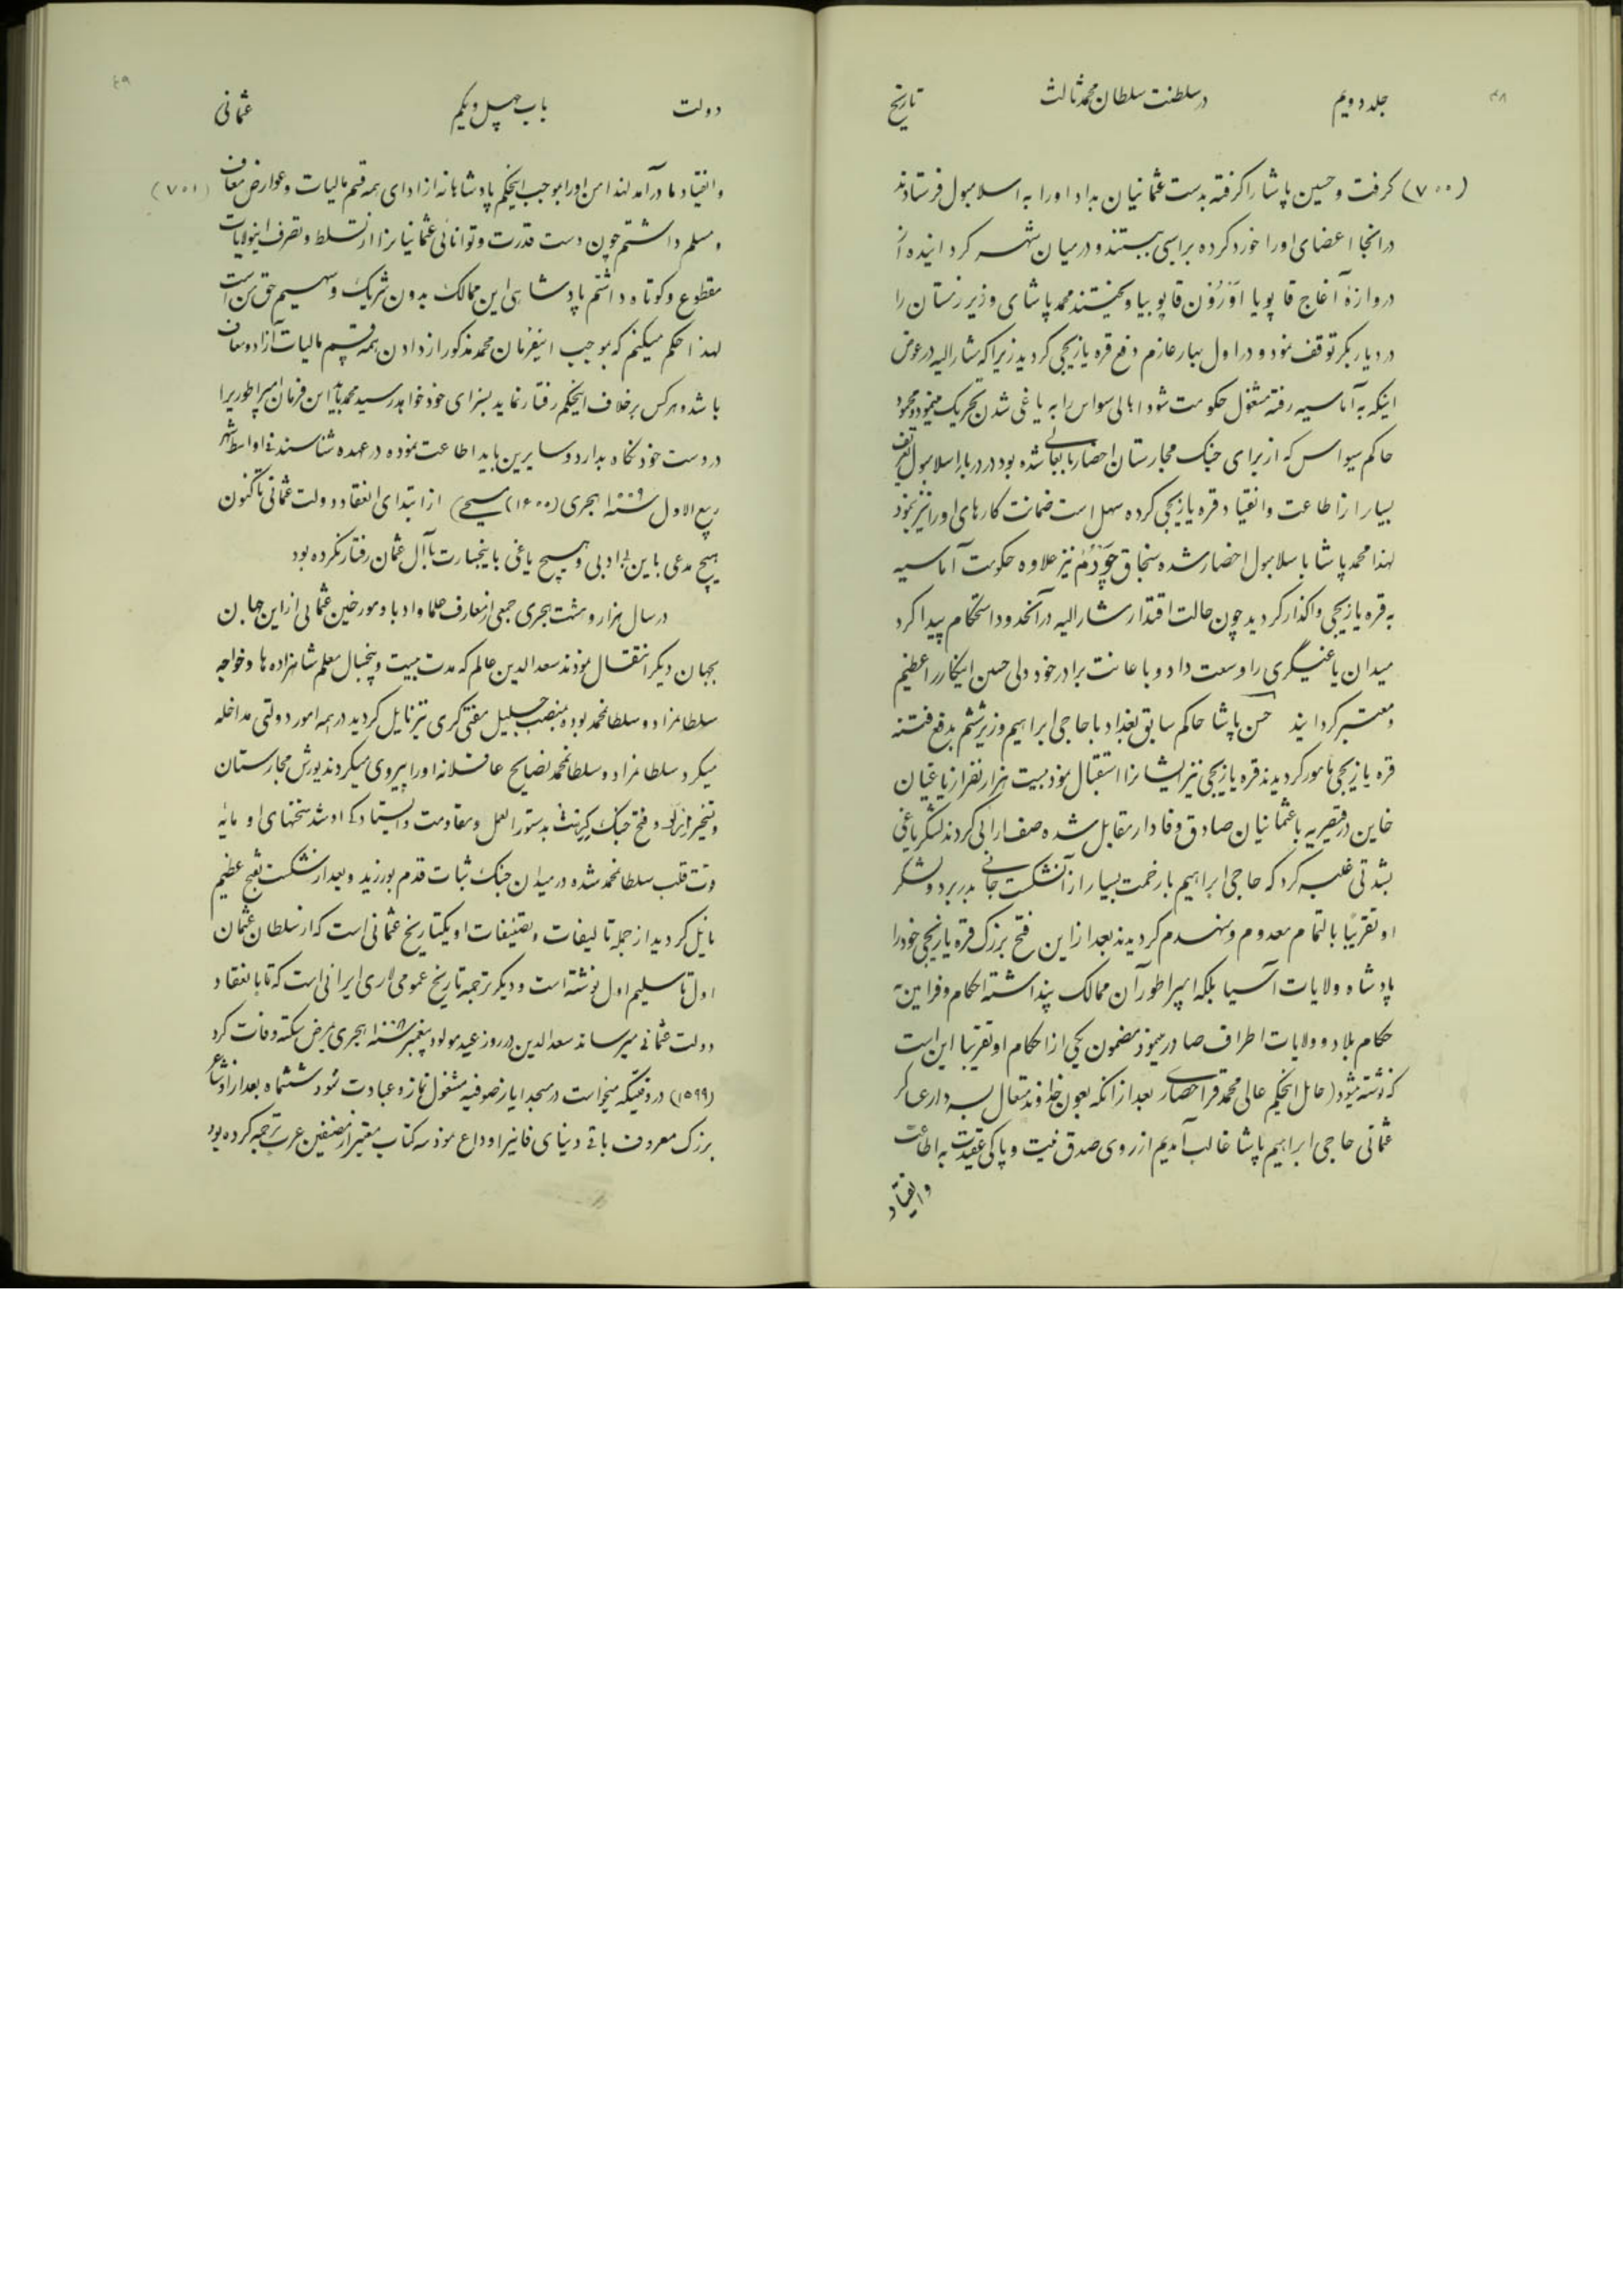 ۴۸
جلد دویم
در سلطنت سلطان محمد ثالث
تاریخ
(۷۰۰) کرفت و حسین پاشا را کرفته بدست عثمانیان بداد او را به اسلامبول فرستادند
در انجا اعضای او را خورد کرده براسبی ببستند و در میان شهر کردانیده از
دروازهٔ آغاج قاپو یا اوزون قاپو بیاویختند محمد پاشای وزیر زمستان را
در دیاربکر توقف نمود و در اول بهار عازم دفع قره یازیجی کردید زیرا که مشارالیه در عوض
اینکه به آماسیه رفته مشغول حکومت شود اهالی سواس را به یاغی شدن تحریک مینمود و محمود
حاکم سیواس که از برای جنک مجارستان احضار شده بود در دربار اسلامبول تعریف
بسیار از اطاعت و انقیاد قره یازیجی کرده سهل است ضمانت کارهای او را نیز نمود
لهذا محمد پاشا باسلامبول احضار شده سنجاق چوردم نیز علاوه حکومت آماسیه
به قره یازیجی واکذار کردید چون حالت اقتدار مشارالیه در آنحدود استحکام پیدا کرد
میدان یاغیگری را وسعت داد و با عانت برادر خود دلی حسین اینکار را عظیم
و معتبر کردانید حسن پاشا حاکم سابق بغداد با حاجی ابراهیم وزیر ششم بدفع فتنه
قره یازیجی مامور کردیدند قره یازیجی نیز ایشانرا استقبال نمود بیست هزار نفر از یاغیان
خاین در قیصریه با عثمانیان صادق وفادار مقابل شده صف ارائی کردند لشکر یاغی
بشدتی غلبه کرد که حاجی ابراهیم با زحمت بسیار از آنشکست جانی بدر برد و لشکر
او تقریبًا بالتمام معدوم و منهدم کردیدند بعد از این فتح بزرک قره یازیجی خود را
پادشاه ولایات آسیا بلکه امپراطور آن ممالک پنداشته احکام و فرامین به
حکام بلاد و ولایات اطراف صادر مینمود مضمون یکی از احکام او تقریبا این است
که نوشته میشود (حامل اینحکم عالی محمد قراحصاری بعد از انکه بعون خداوند متعال بسردار عساکر
عثمانی حاجی ابراهیم پاشا غالب آمدیم از روی صدق نیت و پاکی عقیدت به اطاعت
و انقیاد
۴۹
دولت
باب چهل و یکم
عثمانی
و انقیاد ما درآمد لهذا من او را بموجب اینحکم پادشاهانه از ادای همه قسم مالیات و عوارض معاف (۷۰۱)
و مسلم داشتم چون دست قدرت و توانائی عثمانیانرا از تسلط و تصرف اینولایات
مقطوع و کوتاه داشتم پادشاهی این ممالک بدون شریک و سهیم حق من است
لهذا حکم میکنم که بموجب اینفرمان محمد مذکور از دادن همه قسم مالیات آزاد و معاف
باشد و هرکس برخلاف اینحکم رفتار نماید بسزای خود خواهد رسید محمد باید این فرمان امپراطوری را
در دست خود نکاه بدارد و سایرین باید اطاعت نموده در عهده شناسند فی اواسط شهر
ربیع الاول سنه ۱۰۰۹ هجری (۱۶۰۰ مسیحی) از ابتدای انعقاد دولت عثمانی تاکنون
هیچ مدعی باین بی ادبی و هیچ یاغی باینجسارت با آل عثمان رفتار نکرده بود
در سال هزار و هشت هجری جمعی از معارف علما و ادبا و مورخین عثمانی از این جهان
بجهان دیکر انتقال نمودند سعدالدین عالم که مدت بیست و پنجسال معلم شاهزاده ها و خواجه
سلطانمراد و سلطانمحمد بوده بمنصب جلیل مفتی کری نیز نایل کردید در همه امور دولتی مداخله
میکرد سلطانمراد و سلطانمحمد نصایح عاقلانه او را پیروی میکردند یورش مجارستان
و تسخیر و فتح جنک کرزت بدستورالعمل و مقاومت و ایستادکی او شد سخنهای او مایه
قوت قلب سلطانمحمد شده در میدان جنک ثبات قدم بورزید و بعد از شکست بفتح عظیم
نایل کردید از جمله تالیفات و تصنیفات او یکتاریخ عثمانی است که از سلطان عثمان
اول تا سلیم اول نوشته است و دیکر ترجمه تاریخ عمومی لاری ایرانی است که تا بانعقاد
دولت عثمانی میرساند سعدالدین در روز عید مولود پیغمبر سنه ۱۰۰۸ هجری بمرض سکته وفات کرد
(۱۵۹۹) در وقتیکه میخواست در مسجد ایاز صوفیه مشغول نماز و عبادت شود ششماه بعد از او شاعر
بزرک معروف باقی دنیای فانیرا وداع نمود سه کتاب معتبر از مصنفین عرب ترجمه کرده بود